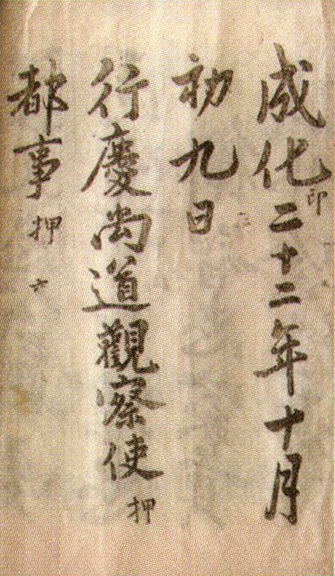 成化二十二年十月
印
初九日
行慶尙道觀察使
押
都事 押
六